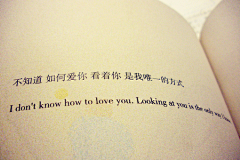 不知道 如何爱你 看着你 是我唯一的方式
I don't know how to love you. Looking at you is the only way I